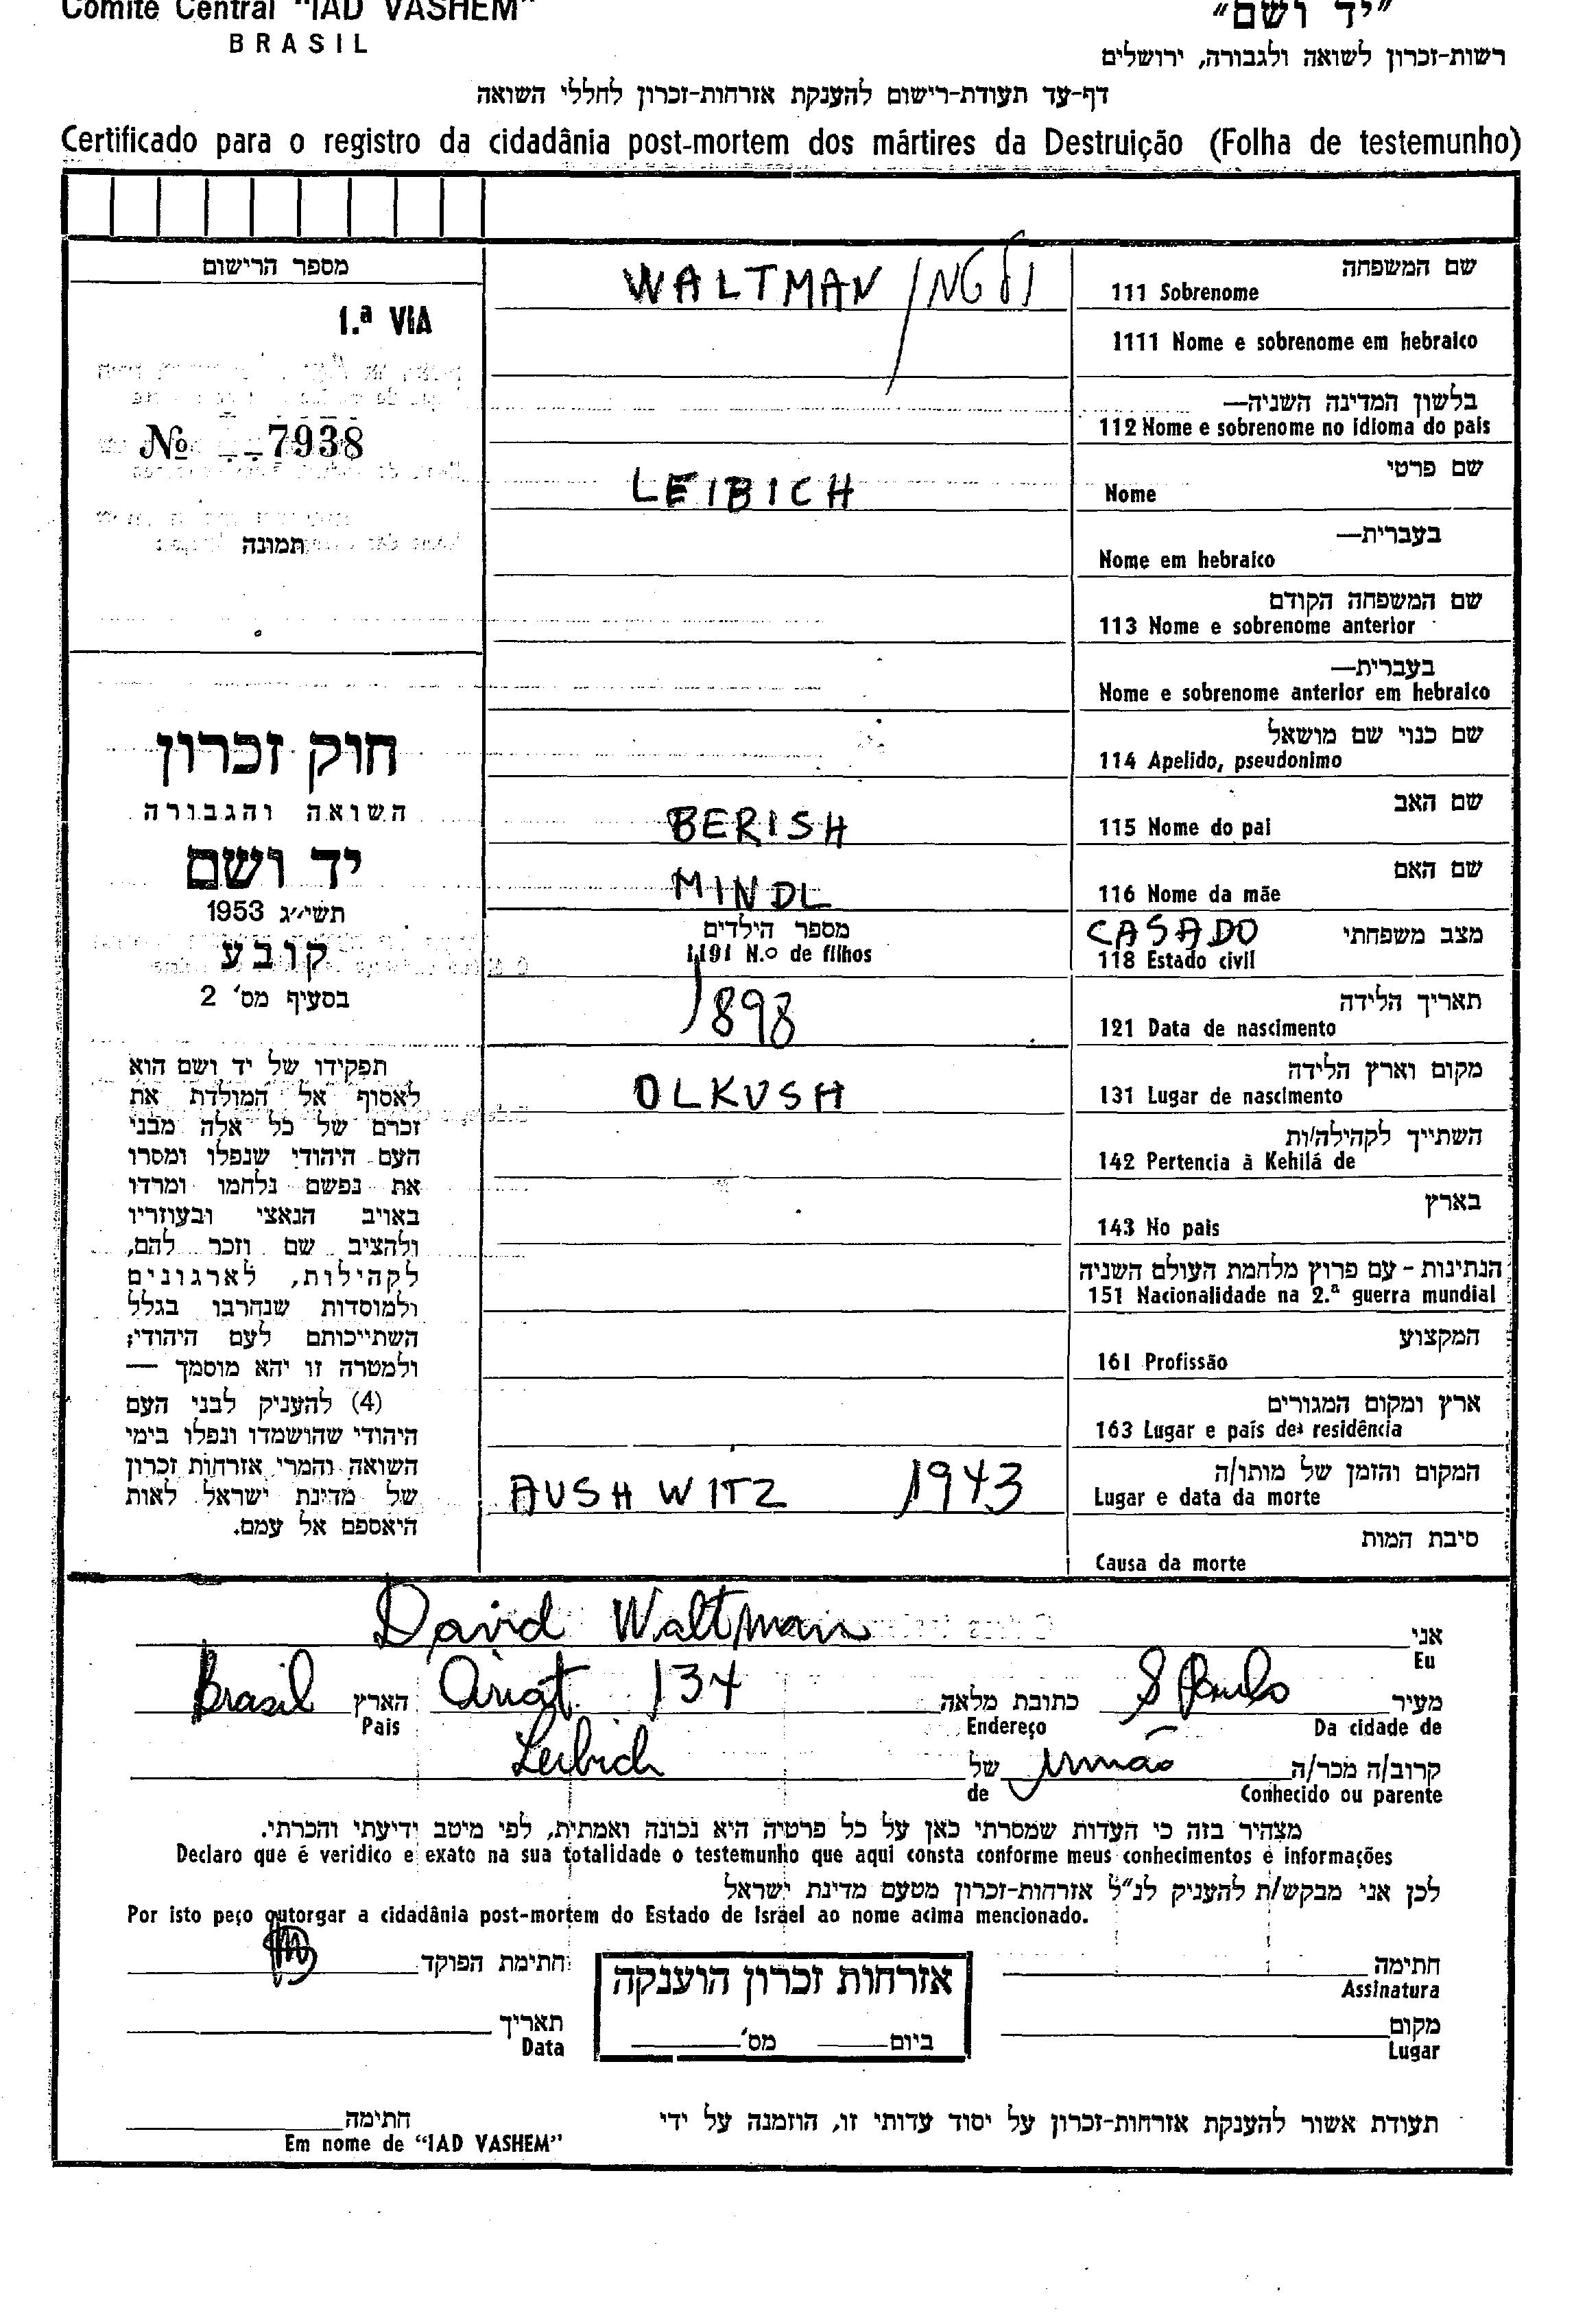 Comité Central "IAD VASHEM"
BRASIL
"יד ושם"
רשות-זכרון לשואה ולגבורה, ירושלים
דף-עד תעודת-רישום להענקת אזרחות-זכרון לחללי השואה
Certificado para o registro da cidadânia post-mortem dos mártires da Destruição (Folha de testemunho)
מספר הרישום
1.ª VIA
Nº 7938
תמונה
חוק זכרון
השואה והגבורה
יד ושם
תשי״ג 1953
קובע
בסעיף מס' 2
תפקידו של יד ושם הוא
לאסוף אל המולדת את
זכרם של כל אלה מבני
העם היהודי שנפלו ומסרו
את נפשם נלחמו ומרדו
באויב הנאצי ובעוזריו
ולהציב שם וזכר להם,
לקהילות, לארגונים
ולמוסדות שנחרבו בגלל
השתייכותם לעם היהודי;
ולמטרה זו יהא מוסמך —
(4) להעניק לבני העם
היהודי שהושמדו ונפלו בימי
השואה והמרי אזרחות זכרון
של מדינת ישראל לאות
היאספם אל עמם.
שם המשפחה
111 Sobrenome WALTMAN
1111 Nome e sobrenome em hebraico
בלשון המדינה השניה—
112 Nome e sobrenome no idioma do pais
שם פרטי
Nome LEIBICH
בעברית—
Nome em hebraico
שם המשפחה הקודם
113 Nome e sobrenome anterior
בעברית—
Nome e sobrenome anterior em hebraico
שם כנוי שם מושאל
114 Apelido, pseudonimo
שם האב
115 Nome do pai BERISH
שם האם
116 Nome da mãe MINDL
מצב משפחתי CASADO
118 Estado civil
מספר הילדים
1191 N.º de filhos
תאריך הלידה
121 Data de nascimento 1898
מקום וארץ הלידה
131 Lugar de nascimento OLKUSH
השתייך לקהילה/ות
142 Pertencia à Kehilá de
בארץ
143 No pais
הנתינות - עם פרוץ מלחמת העולם השניה
151 Nacionalidade na 2.ª guerra mundial
המקצוע
161 Profissão
ארץ ומקום המגורים
163 Lugar e país de residência
המקום והזמן של מותו/ה
Lugar e data da morte AUSHWITZ 1943
סיבת המות
Causa da morte
אני David Waltman
Eu
מעיר S Paulo כתובת מלאה 134 הארץ Brasil
Da cidade de Endereço Pais
קרוב/ה מכר/ה irmão של Leibich
Conhecido ou parente de
מצהיר בזה כי העדות שמסרתי כאן על כל פרטיה היא נכונה ואמתית, לפי מיטב ידיעתי והכרתי.
Declaro que é veridico e exato na sua totalidade o testemunho que aqui consta conforme meus conhecimentos e informações
לכן אני מבקש/ת להעניק לנ"ל אזרחות-זכרון מטעם מדינת ישראל
Por isto peço outorgar a cidadânia post-mortem do Estado de Israel ao nome acima mencionado.
חתימה
Assinatura
אזרחות זכרון הוענקה
ביום מס'
חתימת הפוקד
מקום
Lugar
תאריך
Data
תעודת אשור להענקת אזרחות-זכרון על יסוד עדותי זו, הוזמנה על ידי
חתימה
Em nome de "IAD VASHEM"